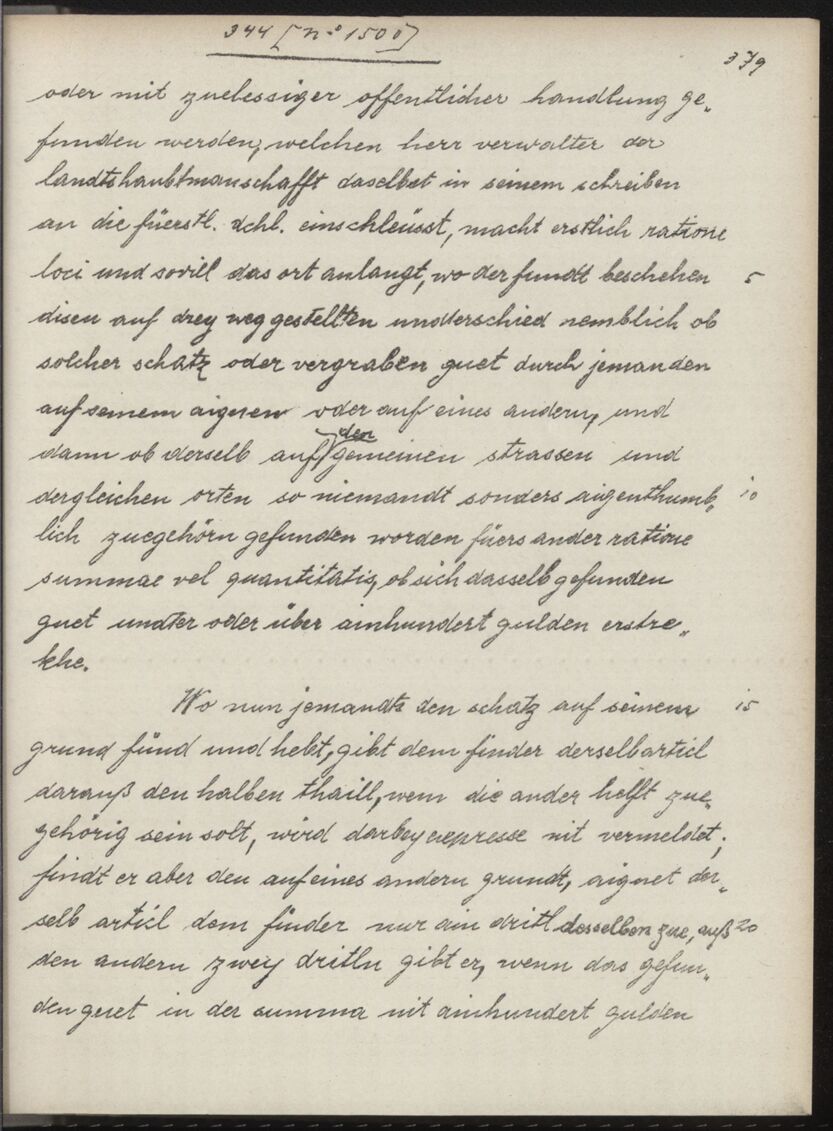 344 [nº 1500]
379
oder mit zuelessiger offentlicher handlung ge„
funden werden, welchen herr verwalter der
landtshaubtmanschafft daselbet in seinem schreiben
an die füerstl. dchl. einschleüsst, macht erstlich ratione
loci und sovill das ort anlangt, wo der fundt beschehen 5
disen auf drey weg gestellten underschied nemblich ob
solcher schatz oder vergraben guet durch jemanden
auf seinem aignen oder auf eines andern, und
dann ob derselb auf den gemeinen strassen und
dergleichen orten so niemandt sonders aigenthumb„ 10
lich zuegehörn gefunden worden füers ander ratione
summae vel quantitatis, ob sich dasselb gefunden
guet undter oder über ainhundert gulden erstre„
khe.
Wo nun jemandts den schatz auf seinem 15
grund fünd und hebt, gibt dem finder derselb articl
darauß den halben thaill, wem die ander helft zue„
gehörig sein solt, wird darbey expresse nit vermeldet;
findt er aber den auf eines andern grundt, aignet der„
selb articl dem finder nur ain dritl desselben zue, auß 20
den andern zwey dritln gibt er, wenn das gefun„
den guet in der summa nit ainhundert gulden